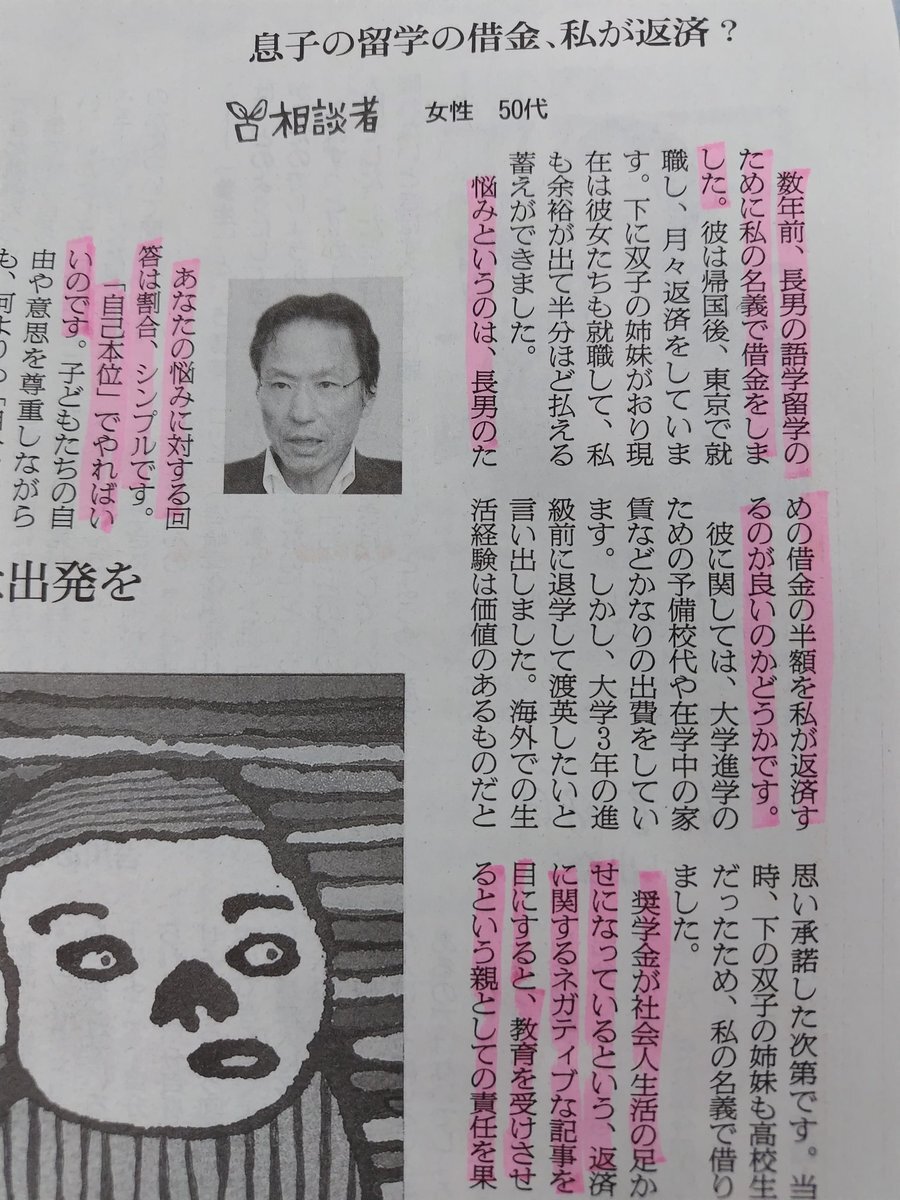 息子の留学の借金、私が返済？
相談者
女性　50代
数年前、長男の語学留学の
ために私の名義で借金をしま
した。彼は帰国後、東京で就
職し、月々返済をしていま
す。下に双子の姉妹がおり現
在は彼女たちも就職して、私
も余裕が出て半分ほど払える
蓄えができました。
悩みというのは、長男のた
めの借金の半額を私が返済す
るのが良いのかどうかです。
彼に関しては、大学進学の
ための予備校代や在学中の家
賃などかなりの出費をしてい
ます。しかし、大学３年の進
級前に退学して渡英したいと
言い出しました。海外での生
活経験は価値のあるものだと
思い承諾した次第です。当
時、下の双子の姉妹も高校生
だったため、私の名義で借り
ました。
奨学金が社会人生活の足か
せになっているという、返済
に関するネガティブな記事を
目にすると、教育を受けさせ
るという親としての責任を果
あなたの悩みに対する回
答は割合、シンプルです。
「自己本位」でやればい
いのです。子どもたちの自
由や意思を尊重しながら
も、何よりの「
出発を